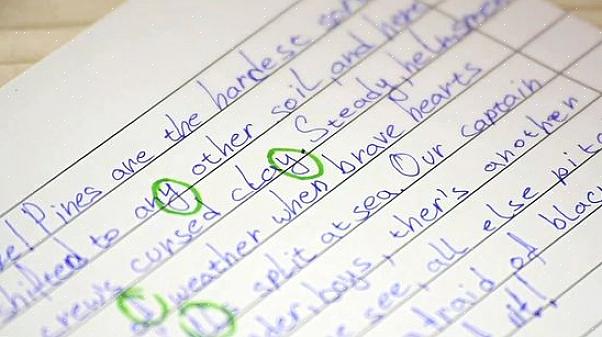 Pines are the hardese
shifted to any other soil, and here
crew's cursed clay. Steady, helmsmen
weather when brave hearts
split at sea. Our captain
boys, ther's another
see, all else
afraid of black
it!